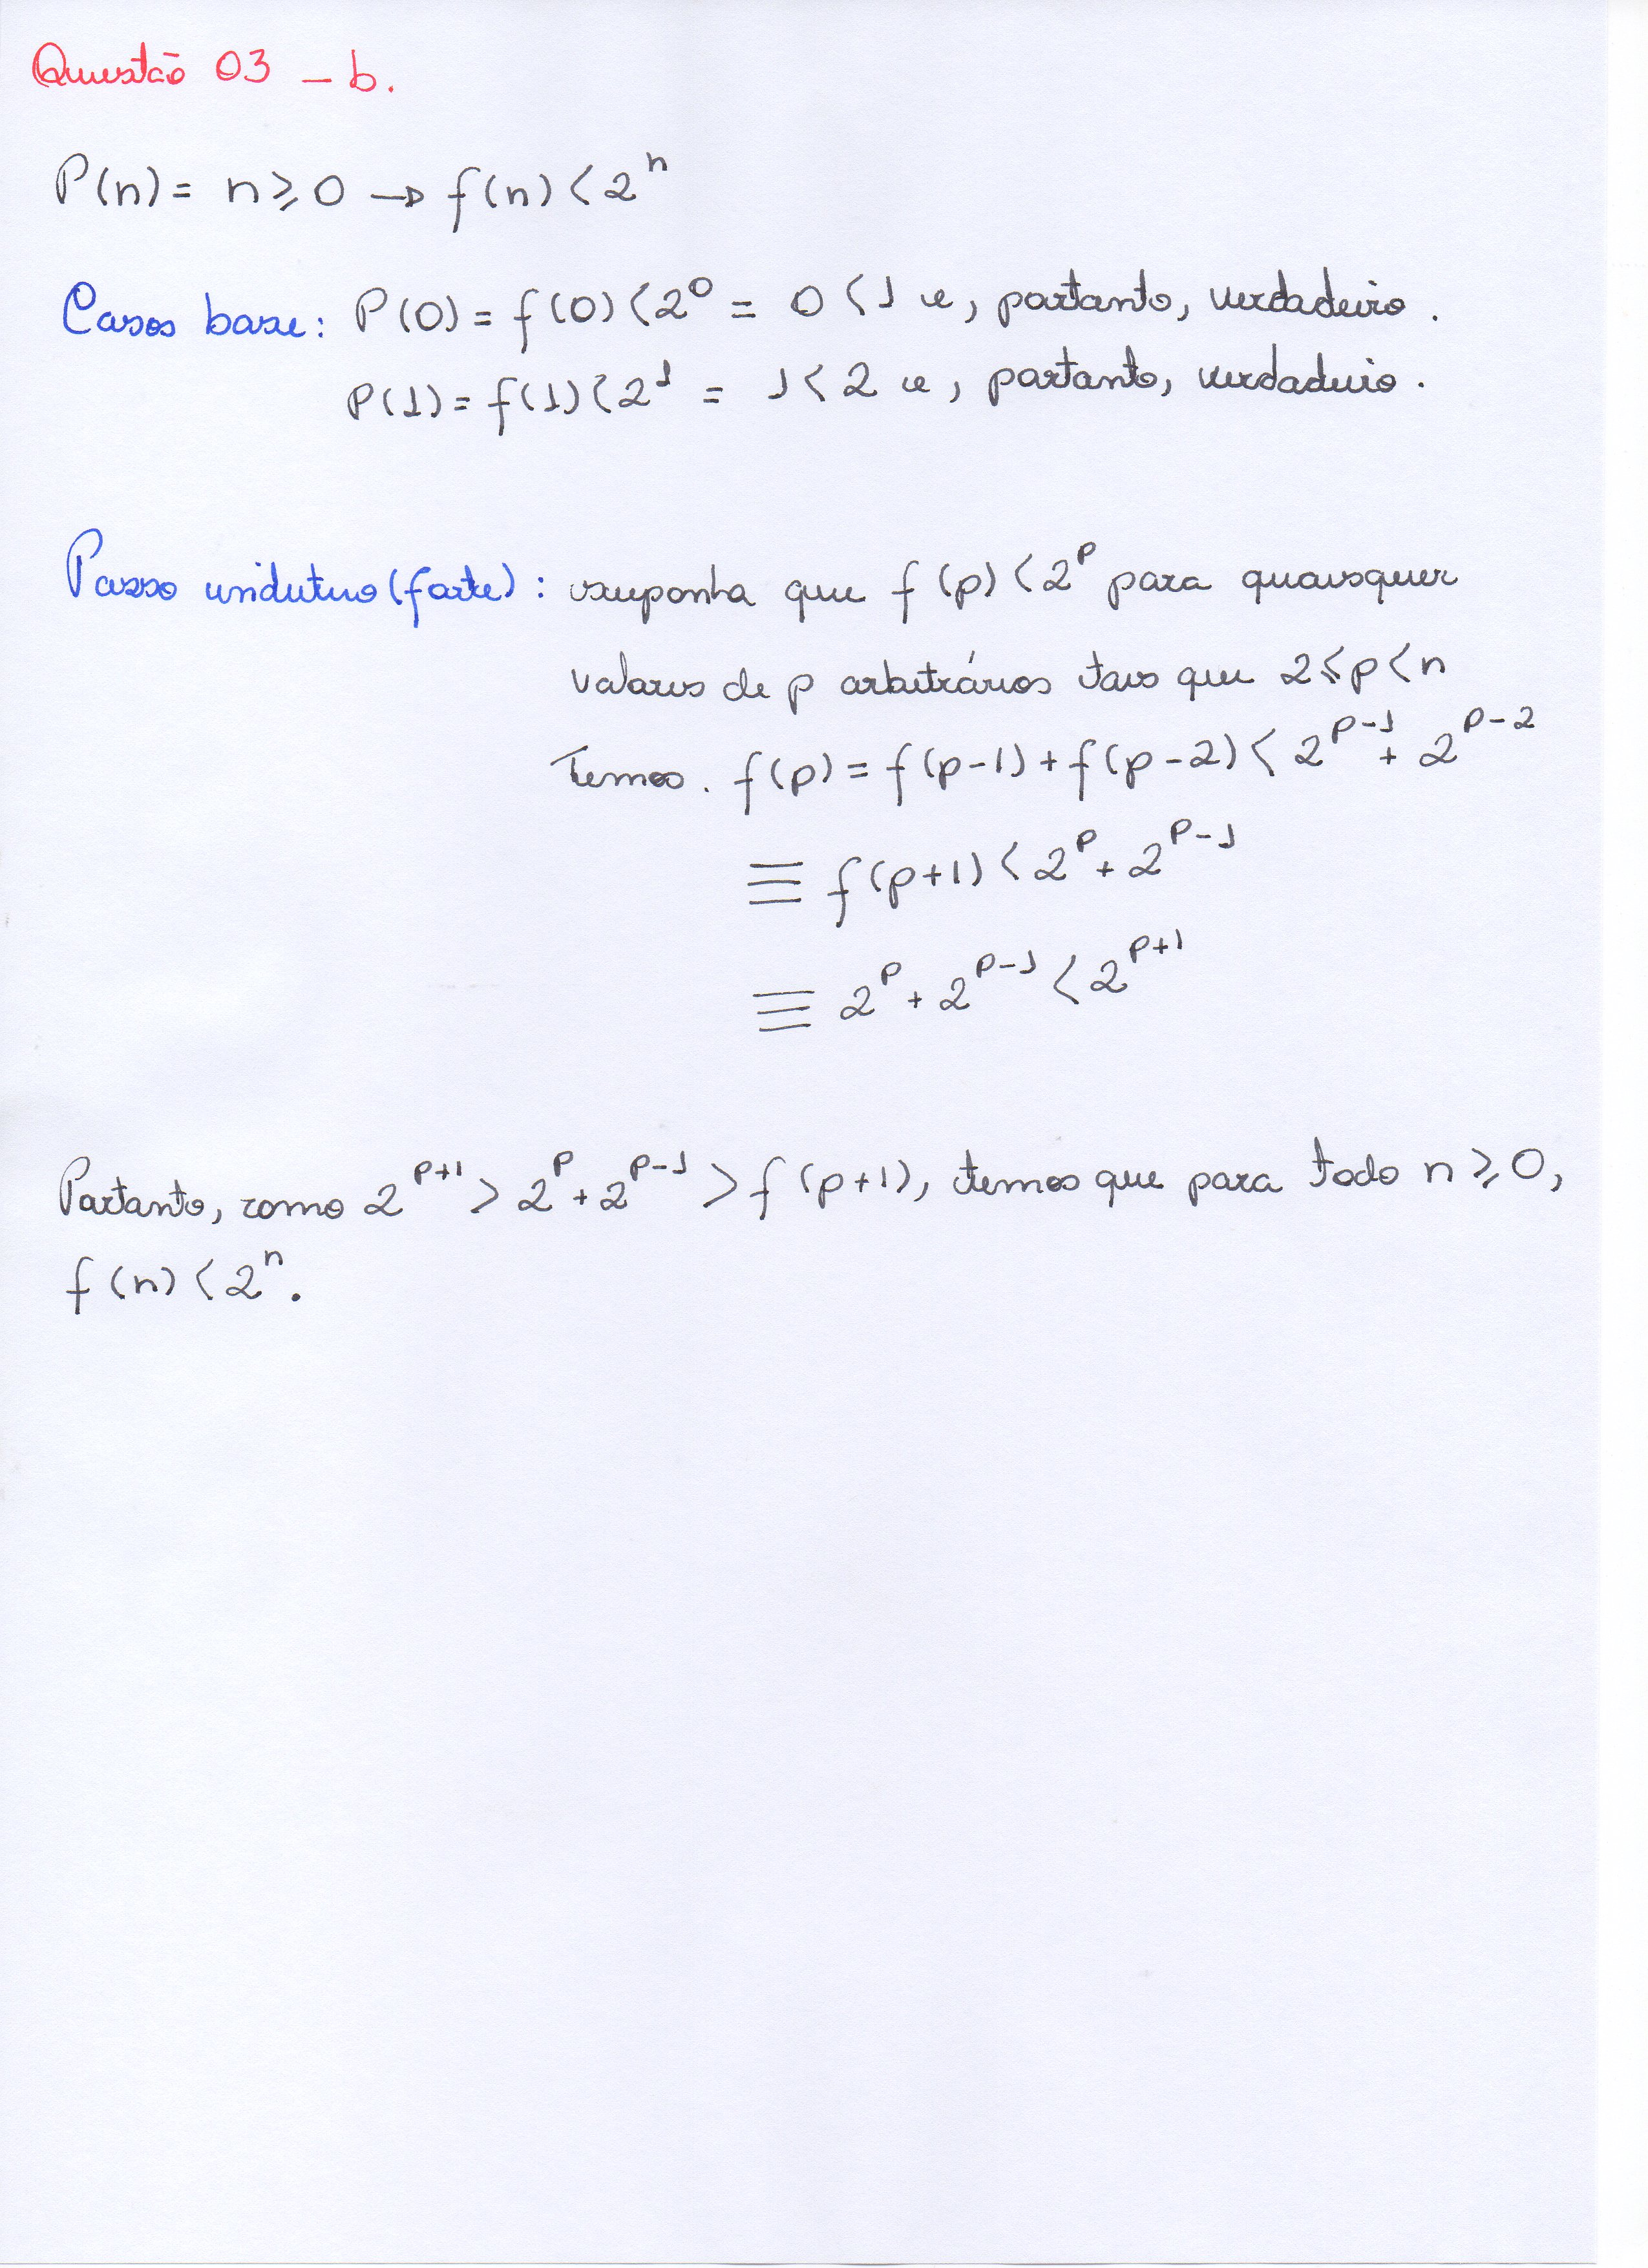 Questão 03 - b.
P(n) = n ≥ 0 → f(n) < 2^n
Casos base: P(0) = f(0) < 2^0 = 0 < 1 e, portanto, verdadeiro.
P(1) = f(1) < 2^1 = 1 < 2 e, portanto, verdadeiro.
Passo indutivo (forte): suponha que f(p) < 2^p para quaisquer
valores de p arbitrários tais que 2 ≤ p < n
Temos. f(p) = f(p-1) + f(p-2) < 2^{p-1} + 2^{p-2}
≡ f(p+1) < 2^p + 2^{p-1}
≡ 2^p + 2^{p-1} < 2^{p+1}
Portanto, como 2^{p+1} > 2^p + 2^{p-1} > f(p+1), temos que para todo n ≥ 0,
f(n) < 2^n.